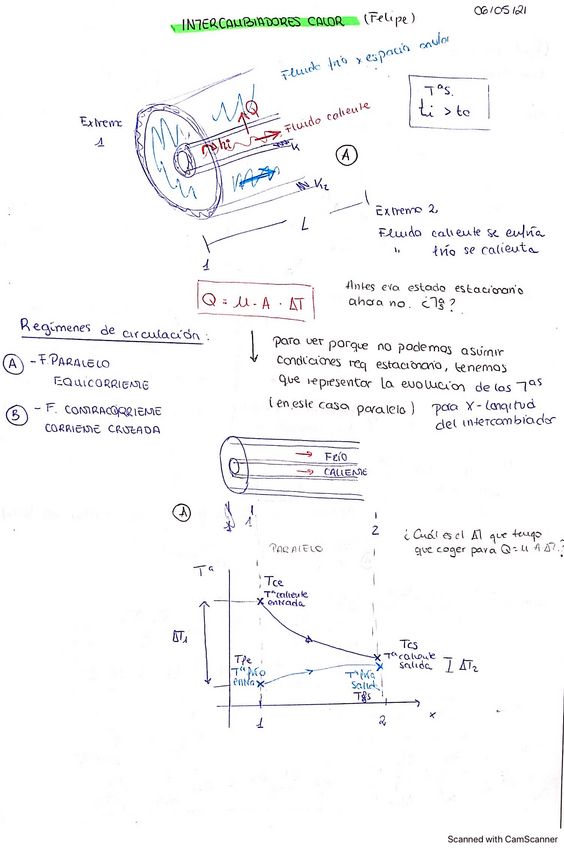 INTERCAMBIADORES CALOR (Felipe)
06/05/21
Fluido frío x espacio anular
Tªs.
ti > te
Q
Extremo
1
hi
Fluido caliente
K
A
K2
L
1
Extremo 2
Fluido caliente se enfría
" frío se calienta
Q = U · A · ΔT
Antes era estado estacionario
ahora no. ¿Tª?
Regímenes de circulación:
A - F. PARALELO
EQUICORRIENTE
B - F. CONTRACORRIENTE
CORRIENTE CRUZADA
para ver porque no podemos asumir
condiciones req estacionario, tenemos
que representar la evolucion de las Tªs
(en este caso paralelo) para X-longitud
del intercambiador
FRÍO
CALIENTE
A
1
2
¿Cuál es el ΔT que tengo
que coger para Q = U A ΔT?
PARALELO
Tª
Tce
Tª caliente
entrada
ΔT1
Tfe
Tª frío
entra
Tcs
Tª caliente
salida
ΔT2
Tª fría
salid
Tfs
1
2
x
Scanned with CamScanner